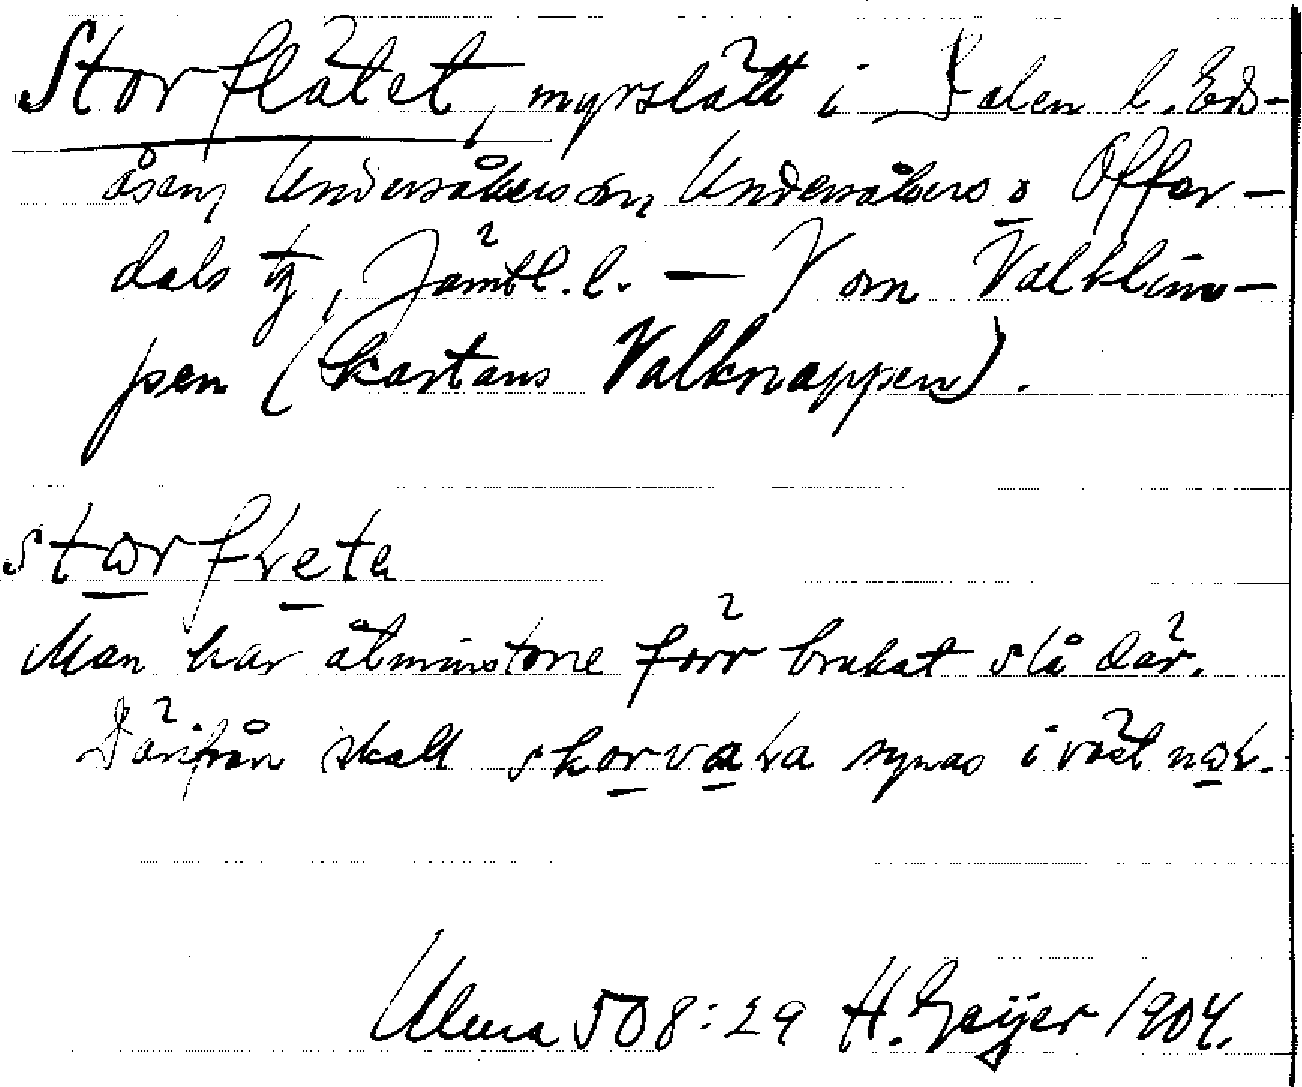 Storflätet, myrslått i Dalen l. Eds-
åsen, Undersåkers sn, Undersåkers o Offer-
dals tg, Jämtl. l. — V om Valklim-
pen (kartans Valknappen).
storfleta
Man har åtminstone förr brukat slå där.
Därifrån skall skorvala synas i väst nol.
Ulma 508:29 H. Geijer 1904.